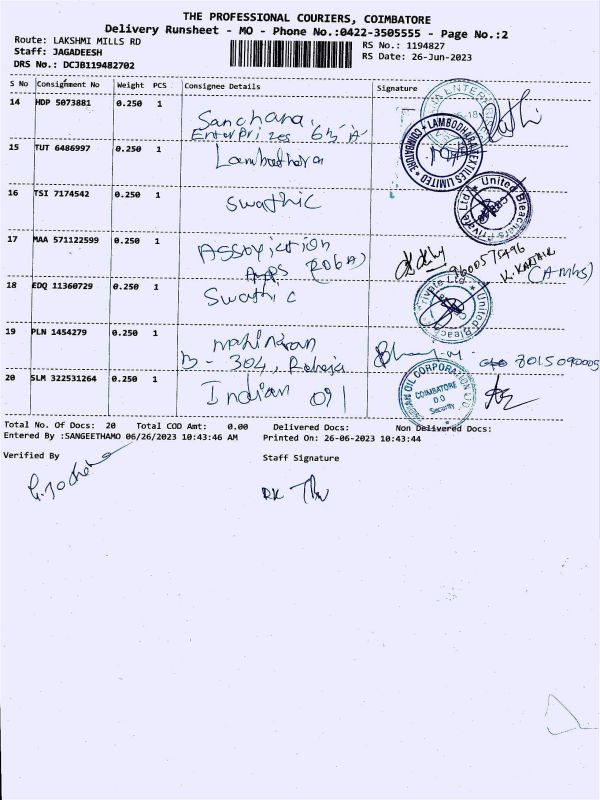 THE PROFESSIONAL COURIERS, COIMBATORE
Delivery Runsheet - MO - Phone No.:0422-3505555 - Page No.:2
Route: LAKSHMI MILLS RD
RS No.: 1194827
Staff: JAGADEESH
RS Date: 26-Jun-2023
DRS No.: DCJB119482702
S No Consignment No Weight PCS Consignee Details Signature
14 HDP 5073881 0.250 1
Sanchana
Enterprizes
15 TUT 6486997 0.250 1
COIMBATORE
16 TSI 7174542 0.250 1 Swathic
United Bleachers Private Ltd
17 MAA 571122599 0.250 1
9600575496
K. KARTHIK
18 EDQ 11360729 0.250 1 Swathic
Private Ltd United Bleachers
19 PLN 1454279 0.250 1
B - 304, Raheja
8015090005
20 SLM 322531264 0.250 1 Indian Oil
INDIAN OIL CORPORATION LTD
COIMBATORE
D.O
Security
Total No. Of Docs: 20 Total COD Amt: 0.00 Delivered Docs: Non Delivered Docs:
Entered By :SANGEETHAMO 06/26/2023 10:43:46 AM Printed On: 26-06-2023 10:43:44
Verified By Staff Signature